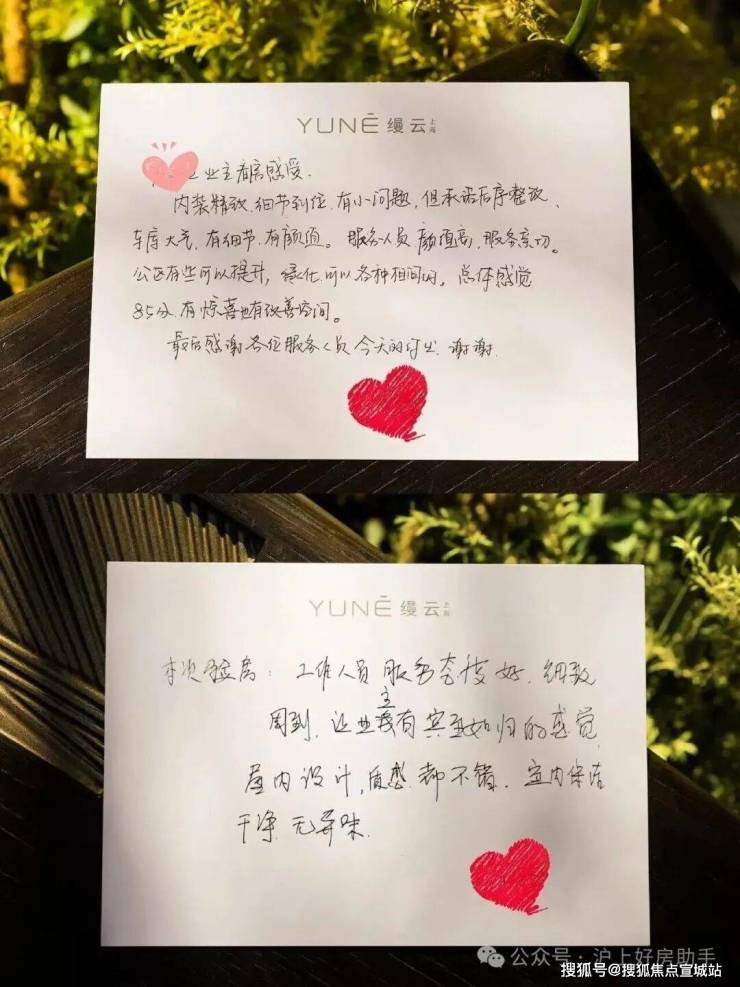 YUNĒ 缦云 上海
业主看房感受.
内装精致.细节到位.有小问题,但承诺后序整改、
车库大气,有细节.有颜值。服务人员颜值高,服务亲切。
公区有些可以提升,绿化可以各种相间的。总体感觉
85分.有惊喜也有改善空间。
最后感谢各位服务人员今天的付出.谢谢.
YUNĒ 缦云 上海
本次验房:工作人员服务态度好.细致
周到,让业主有宾至如归的感觉
屋内设计,质感都不错.室内保洁
干净 无异味.
公众号·沪上好房助手
搜狐号@搜狐焦点宣城站